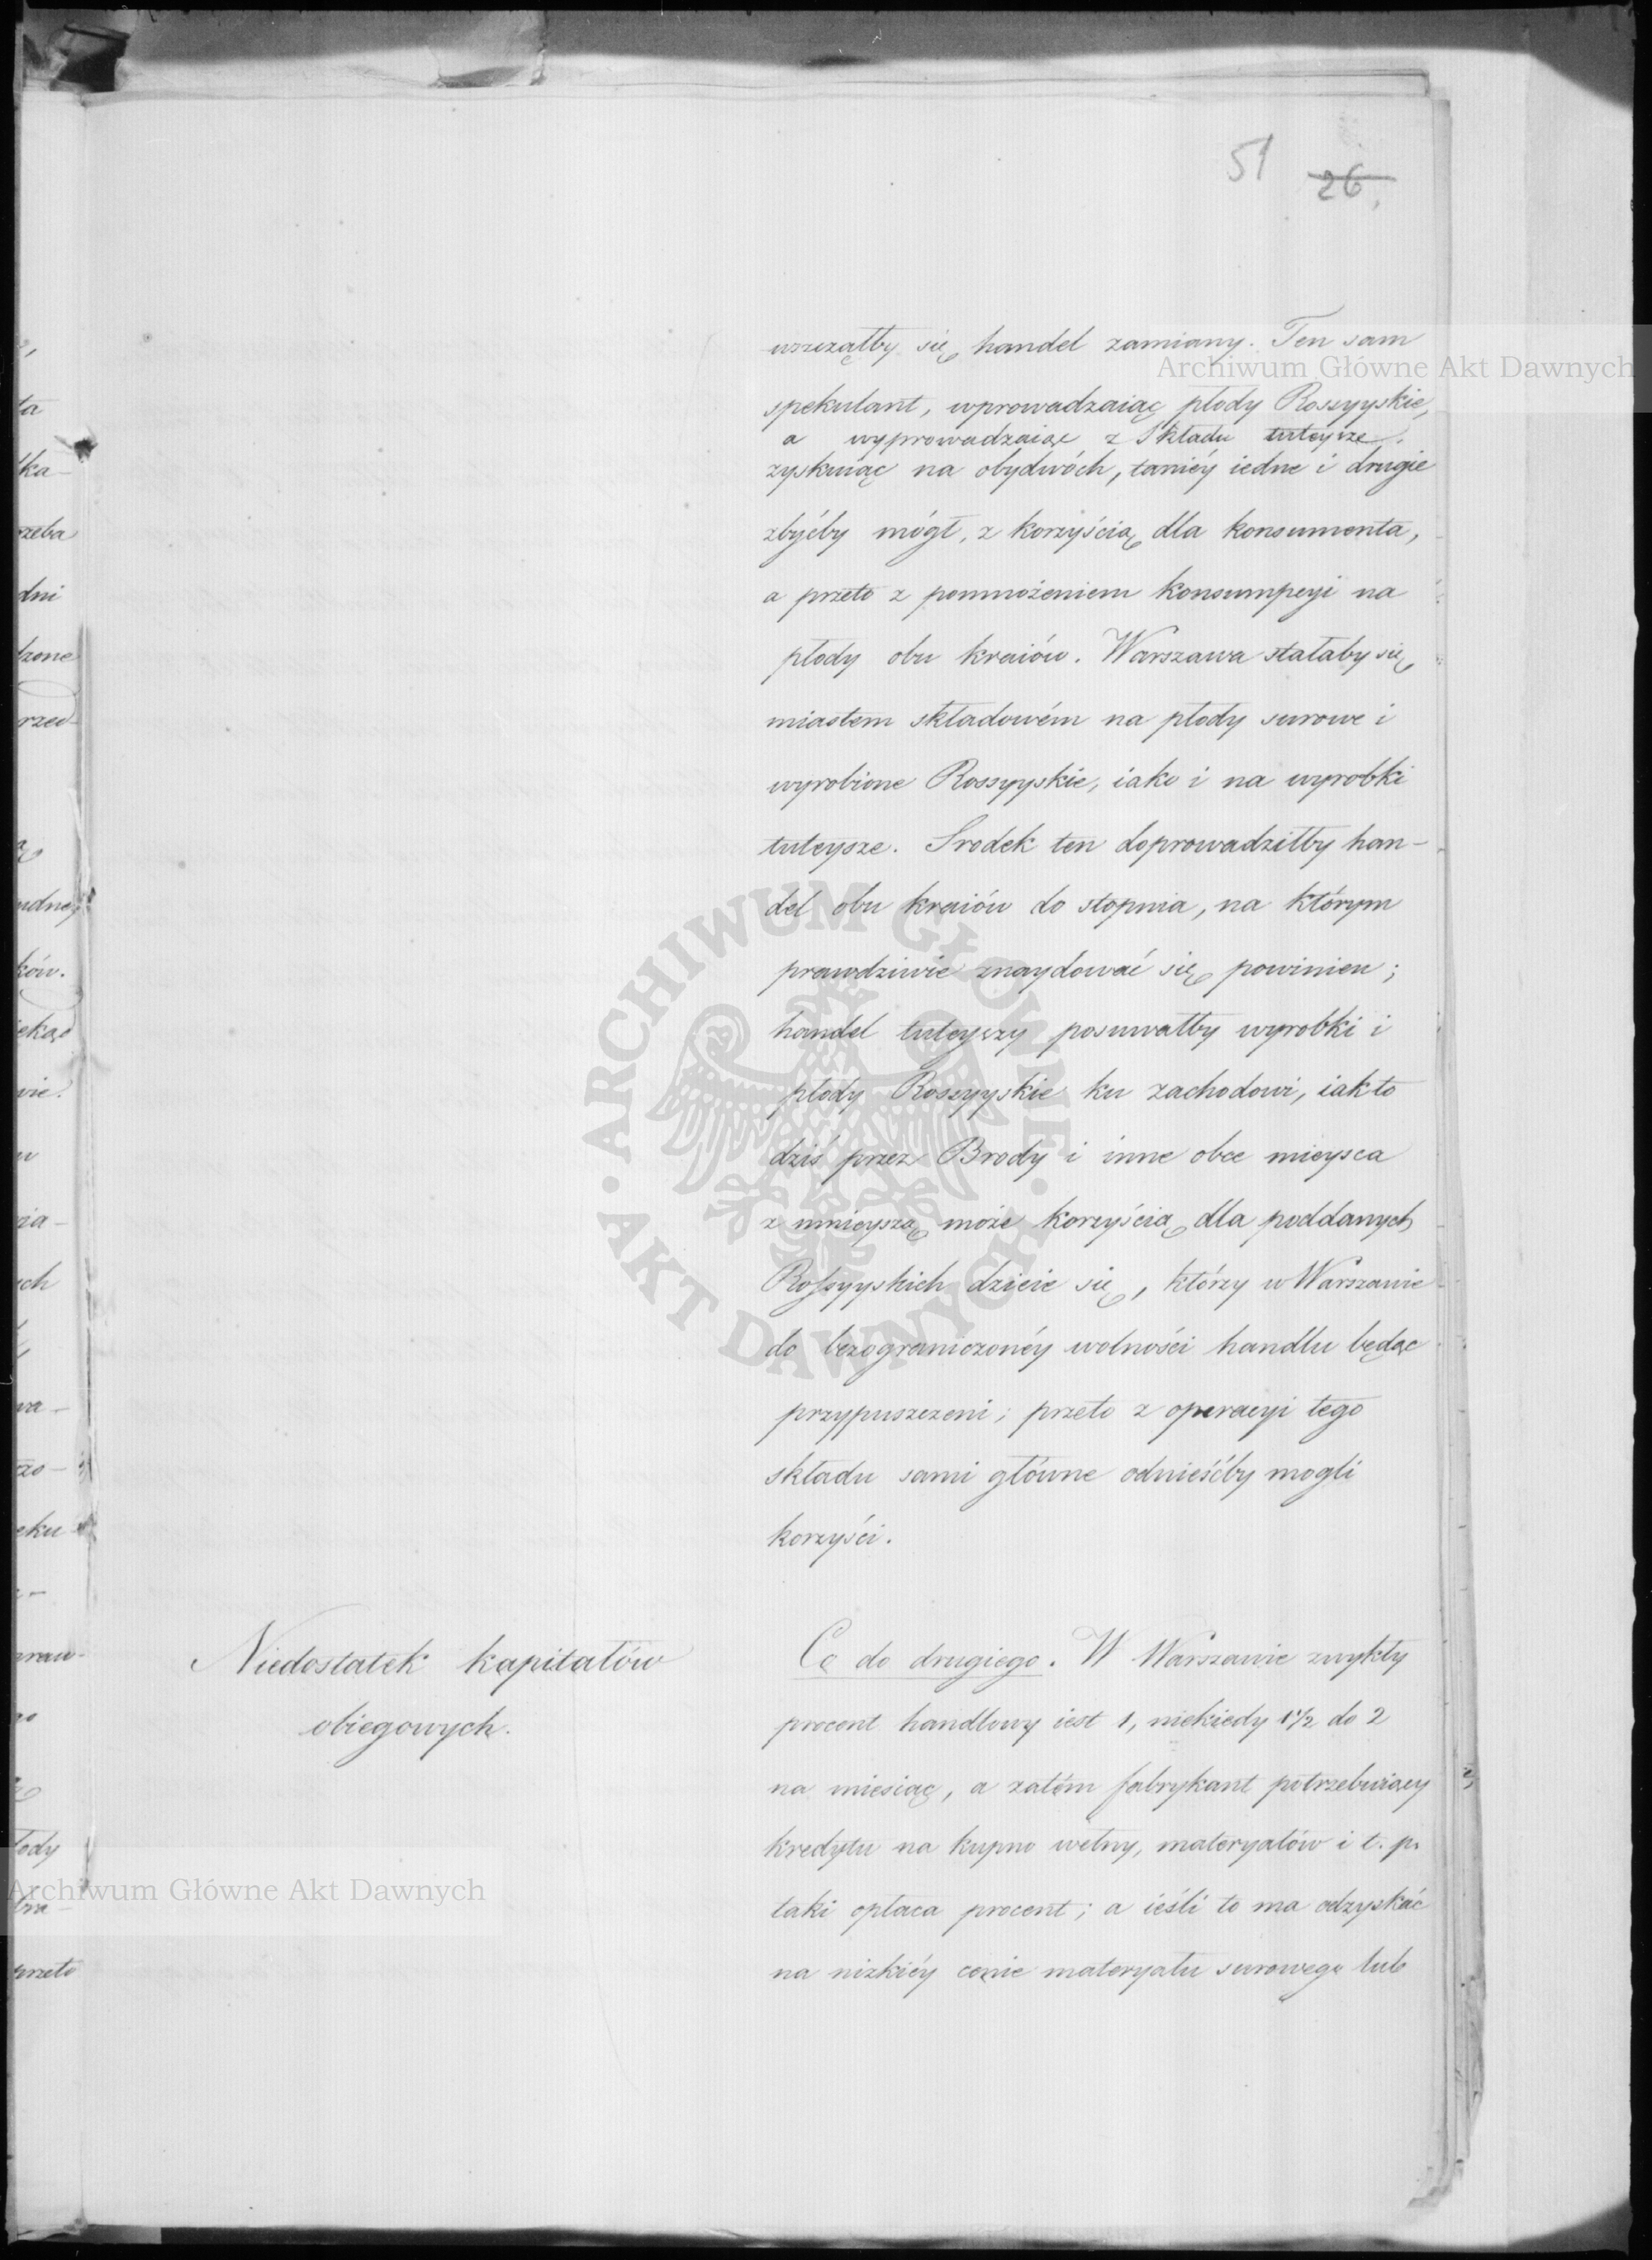 51 26.
wszczął by się handel zamiany. Ten sam
Archiwum Główne Akt Dawnych
spekulant, wprowadzaiąc płody Rossyyskie,
a wyprowadzaiąc z Składu tuteysze.
zyskuiąc na obydwóch, taniéy iedne i drugie
zbyćby mógł, z korzyścią dla konsumenta,
a przeto z pomnożeniem konsumpcyi na
płody obu kraiów. Warszawa stałaby się
miastem składowém na płody surowe i
wyrobione Rossyyskie, iako i na wyrobki
tuteysze. Srodek ten doprowadziłby han-
del obu kraiów do stopnia, na którym
prawdziwie znaydować się powinien;
handel tuteyszy posuwałby wyrobki i
płody Rossyyskie ku zachodowi, iak to
dziś przez Brody i inne obce mieysca
z mnieyszą może korzyścią dla poddanych
Rossyyskich dzieie się, którzy w Warszawie
do bezograniczonéy wolności handlu będąc
przypuszczeni; przeto z operacyi tego
składu sami główne odnieśćby mogli
korzyści.
Niedostatek kapitałów
obiegowych.
Co do drugiego. W Warszawie zwykły
procent handlowy iest 1, niekiedy 1 1/2 do 2
na miesiąc, a zatém fabrykant potrzebuiący
kredytu na kupno wełny, materyałów i t. p.
taki opłaca procent; a ieśli to ma odzyskać
na nizkiéy cenie materyału surowego lub
Archiwum Główne Akt Dawnych
ARCHIWUM GŁÓWNE · AKT DAWNYCH ·